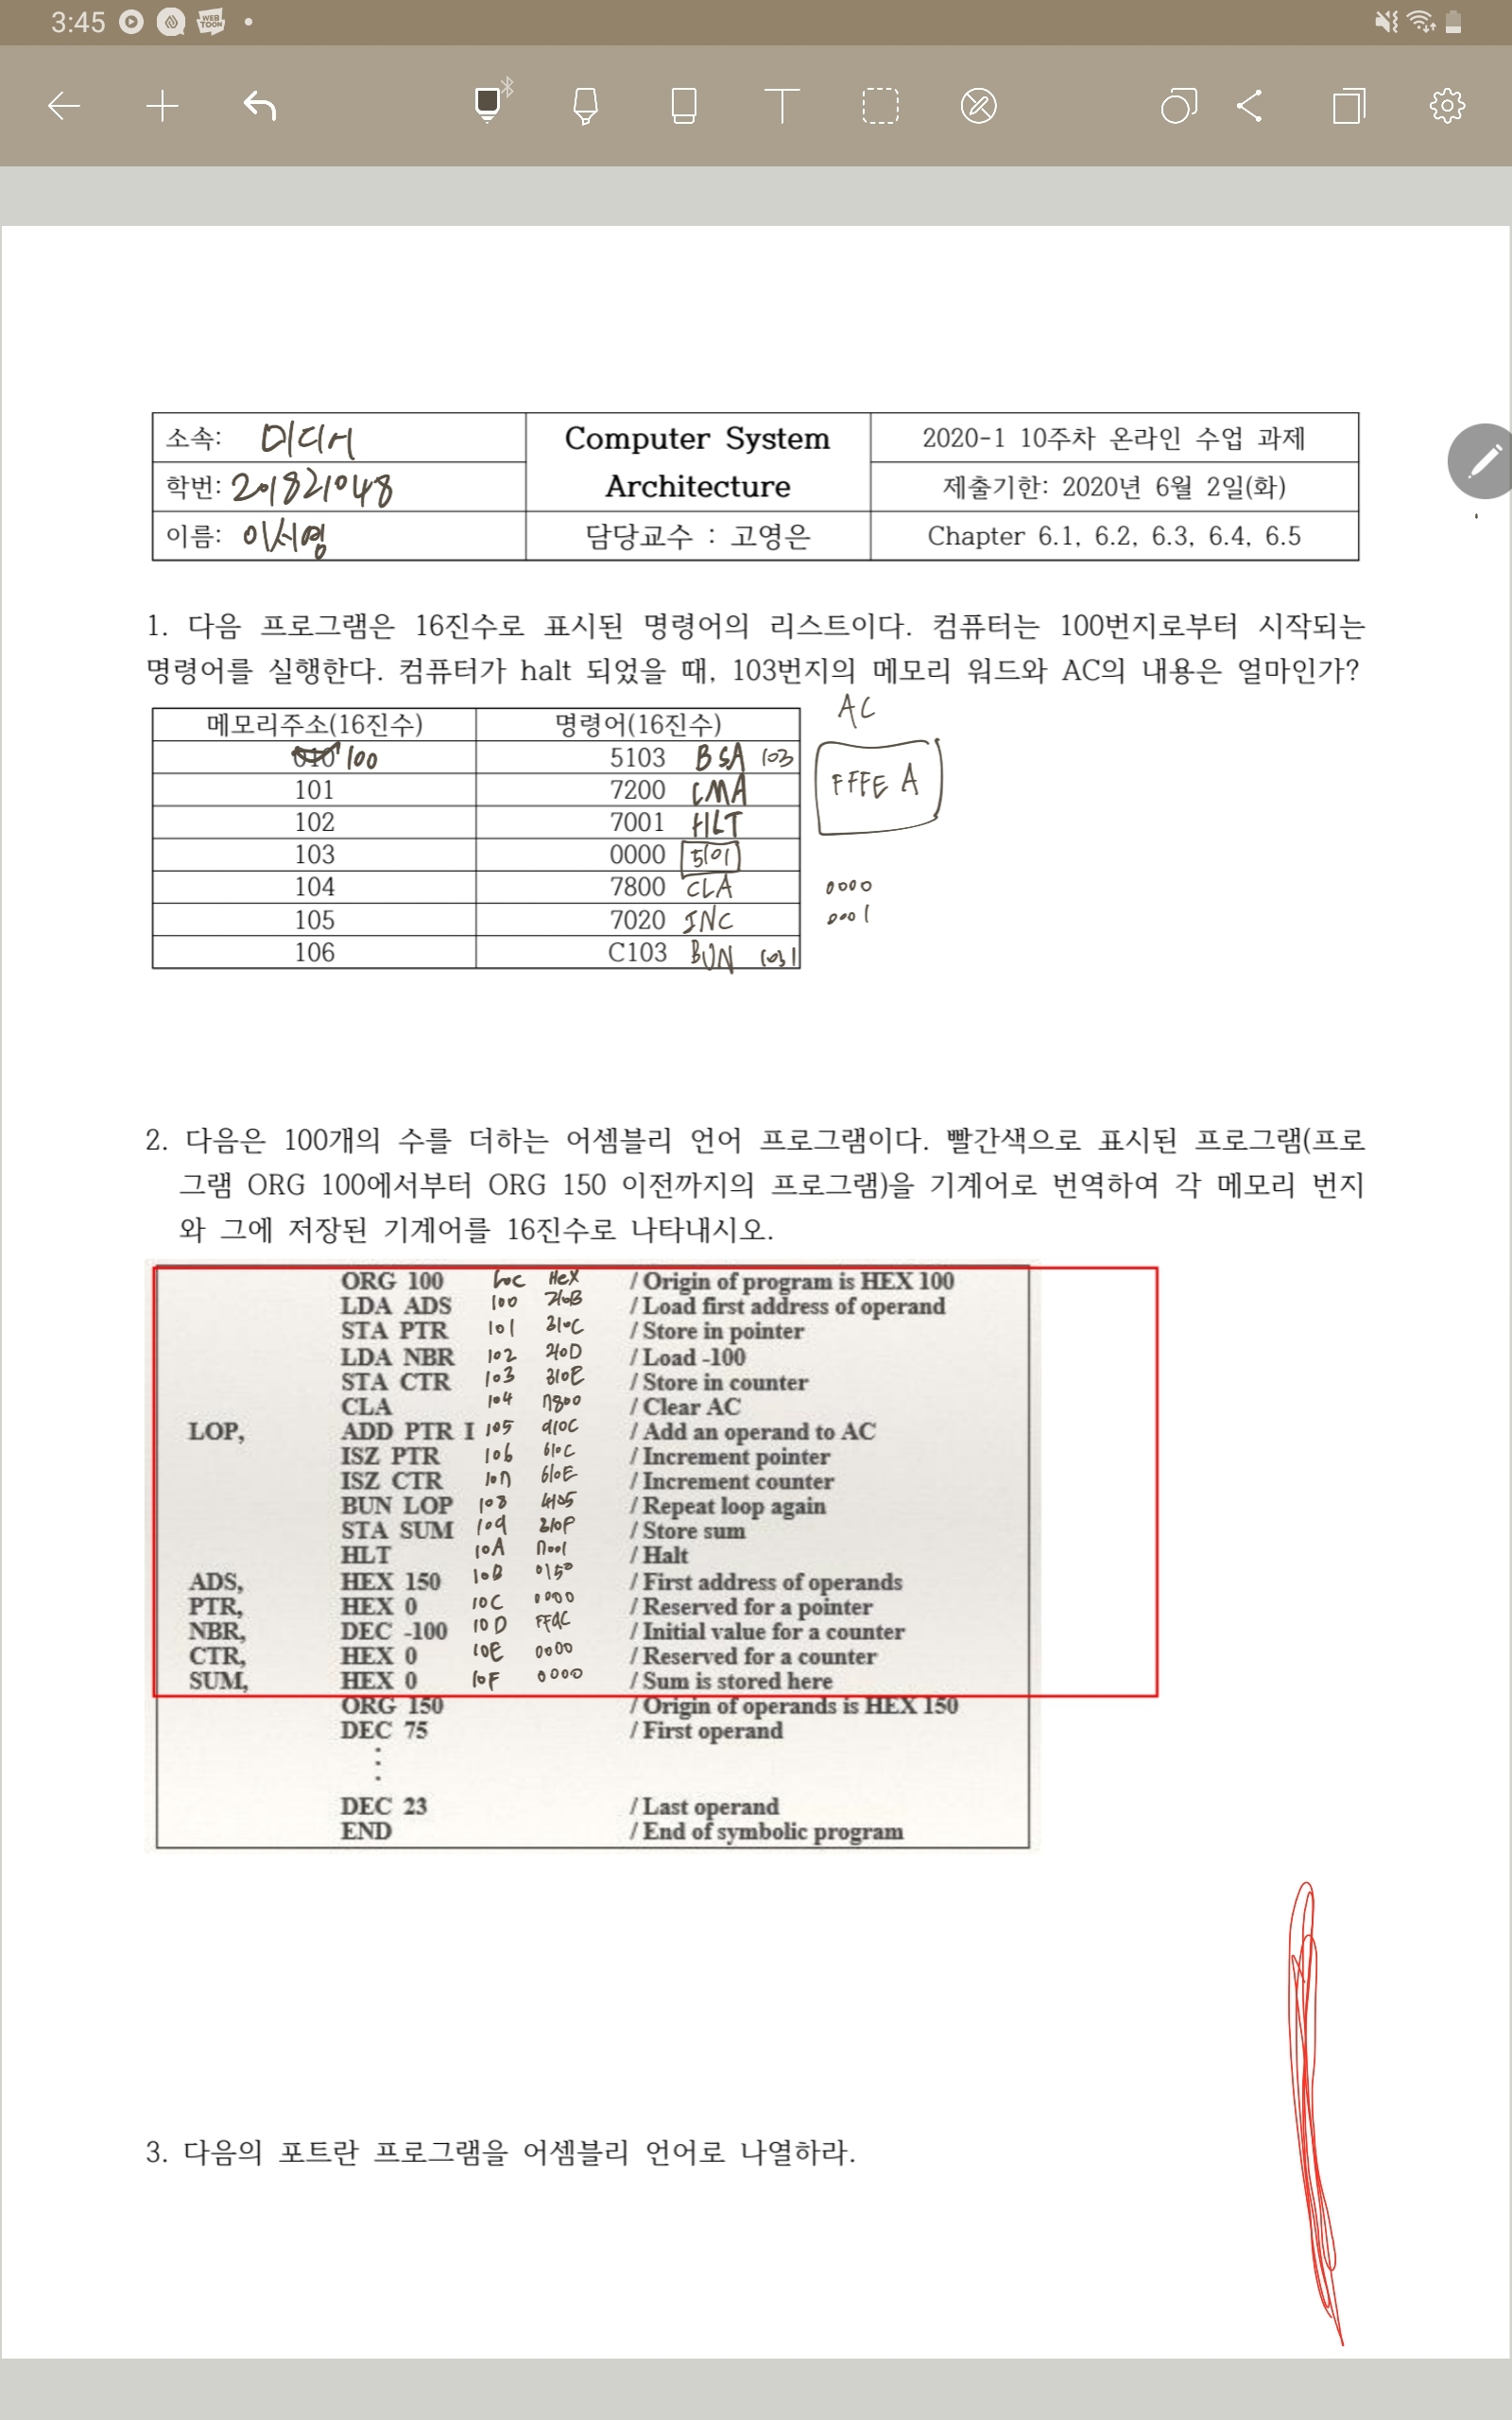 3:45 WEB TOON
소속: 미디어
Computer System Architecture
2020-1 10주차 온라인 수업 과제
학번: 201821048
제출기한: 2020년 6월 2일(화)
이름: 이서영
담당교수 : 고영은
Chapter 6.1, 6.2, 6.3, 6.4, 6.5
1. 다음 프로그램은 16진수로 표시된 명령어의 리스트이다. 컴퓨터는 100번지로부터 시작되는
명령어를 실행한다. 컴퓨터가 halt 되었을 때, 103번지의 메모리 워드와 AC의 내용은 얼마인가?
AC
메모리주소(16진수) 명령어(16진수)
100 5103 BSA 103
FFFE A
101 7200 CMA
102 7001 HLT
103 0000 5101
104 7800 CLA 0000
105 7020 INC 0001
106 C103 BUN 103 I
2. 다음은 100개의 수를 더하는 어셈블리 언어 프로그램이다. 빨간색으로 표시된 프로그램(프로
그램 ORG 100에서부터 ORG 150 이전까지의 프로그램)을 기계어로 번역하여 각 메모리 번지
와 그에 저장된 기계어를 16진수로 나타내시오.
ORG 100 Loc Hex / Origin of program is HEX 100
LDA ADS 100 210B / Load first address of operand
STA PTR 101 310C / Store in pointer
LDA NBR 102 210D / Load -100
STA CTR 103 310E / Store in counter
CLA 104 7800 / Clear AC
LOP, ADD PTR I 105 910C / Add an operand to AC
ISZ PTR 106 610C / Increment pointer
ISZ CTR 107 610E / Increment counter
BUN LOP 108 4105 / Repeat loop again
STA SUM 109 310F / Store sum
HLT 10A 7001 / Halt
ADS, HEX 150 10B 0150 / First address of operands
PTR, HEX 0 10C 0000 / Reserved for a pointer
NBR, DEC -100 10D FF9C / Initial value for a counter
CTR, HEX 0 10E 0000 / Reserved for a counter
SUM, HEX 0 10F 0000 / Sum is stored here
ORG 150 / Origin of operands is HEX 150
DEC 75 / First operand
DEC 23 / Last operand
END / End of symbolic program
3. 다음의 포트란 프로그램을 어셈블리 언어로 나열하라.